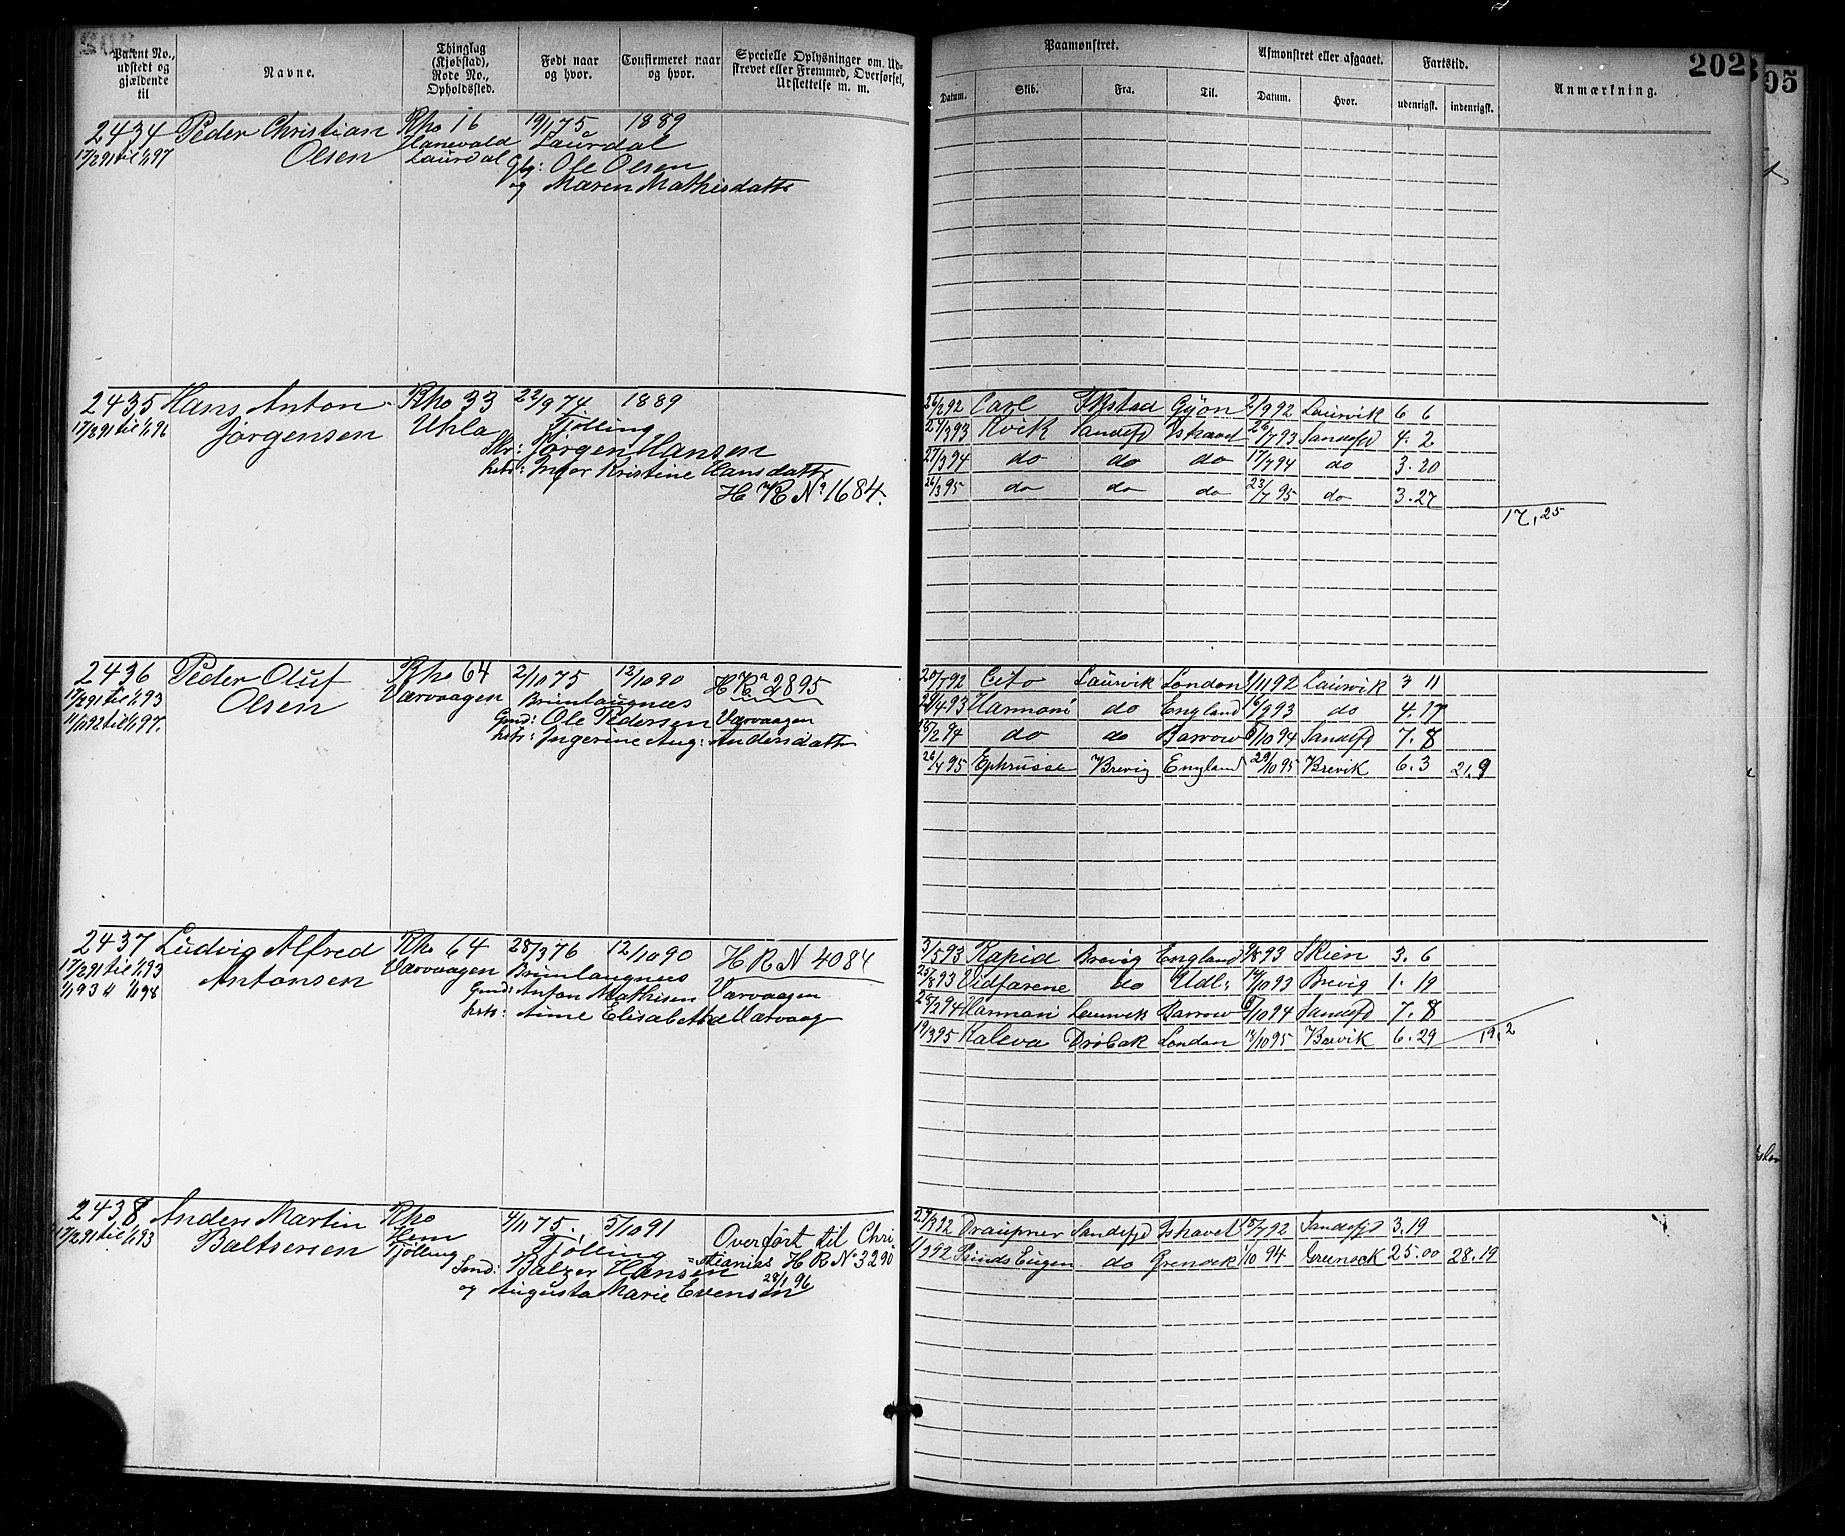 202
95
Patent No., udstedt og gjældende til
Navne.
Thinglag (Kjøbstad), Rode No., Opholdssted.
Født naar og hvor.
Confirmeret naar og hvor.
Specielle Oplysninger om Udskrevet eller Fremmed, Overførsel, Udslettelse m. m.
Paamønstret.
Datum.
Skib.
Fra.
Til.
Afmønstret eller afgaaet.
Datum.
Hvor.
Fartstid.
udenrigsk.
indenrigsk.
Anmærkning.
2434 Peder Christian Rho 16 19/1 75 1889
17/2 91 til 1/1 97 Olsen Hanevald Laurdal
Laurdal Gbg: Ole Olsen
og Maren Mathisdattr
2435 Hans Anton Rho 33 22/9 74 1889
17/2 91 til 1/1 96 Jørgensen Uhla Tjølling
Skr: Jørgen Hansen
hstr: Inger Kristine Hansdattr
H R No 1684.
26/2 92 Carl F.stad Gyon 2/9 92 Laurvik 6 6
27/3 93 Kvik Sandefd Ishavet 26/7 93 Sandefjd 4. 2
27/3 94 do do do 17/7 94 do 3. 20
26/3 95 do do do 23/7 95 do 3. 27
17, 25
2436 Peder Oluf Rho 64 2/10 75 12/10 90 H R No 2895
17/2 91 til 1/1 93 Olsen Værvaagen Brunlaugnæs
11/1 92 til 1/1 97. Gmd: Ole Pedersen Værvaagen
hstr: Ingerine Aug: Andersdattr
20/7 92 Cito Laurvik London 3/11 92 Laurvik 3 11
29/4 93 Harmoni do England 16/9 93 do 4. 17
do do Barrow /10 94 Sandefd 7. 8
26/4 95 Ephrussi Brevig England 29/10 95 Brevik 6. 3 21. 9
2437 Ludvig Alfred Rho 64 28/3 76 12/10 90 H R N 4084
17/2 91 til 1/1 93 Antonsen Værvaagen Brunlaugnæs
1/1 93 til 1/1 98 Gmd: Anton Mathisen Værvaagen
hstr: Anne Elisabeth Værvaag
3/5 93 Rapid Brevig England 9/8 93 Skien 3. 6
25/8 93 Vidfarene do Udl: 14/10 93 Brevig 1. 19
25/2 94 Harmoni Laurvik Barrow /10 94 Sandefd 7. 8
19/3 95 Kaleva Drøbak London 18/10 95 Brevik 6. 29 19. 2
2438 Anders Martin Rho 4/11 75. 5/10 91 Overført til Chri
17/2 91 til 1/1 93 Baltsersen Hem Tjølling =stianias H R No 3290
Tjølling Smd: Balzer Hansen 28/1 96
og Augusta Marie Evensen
29/2 92 Draupner Sandefjd Ishavet 15/7 92 Sandefjd 3. 19
1/9 92 Prinds Eugen do Grenock 1/10 94 Greenock 25. 00 28. 19